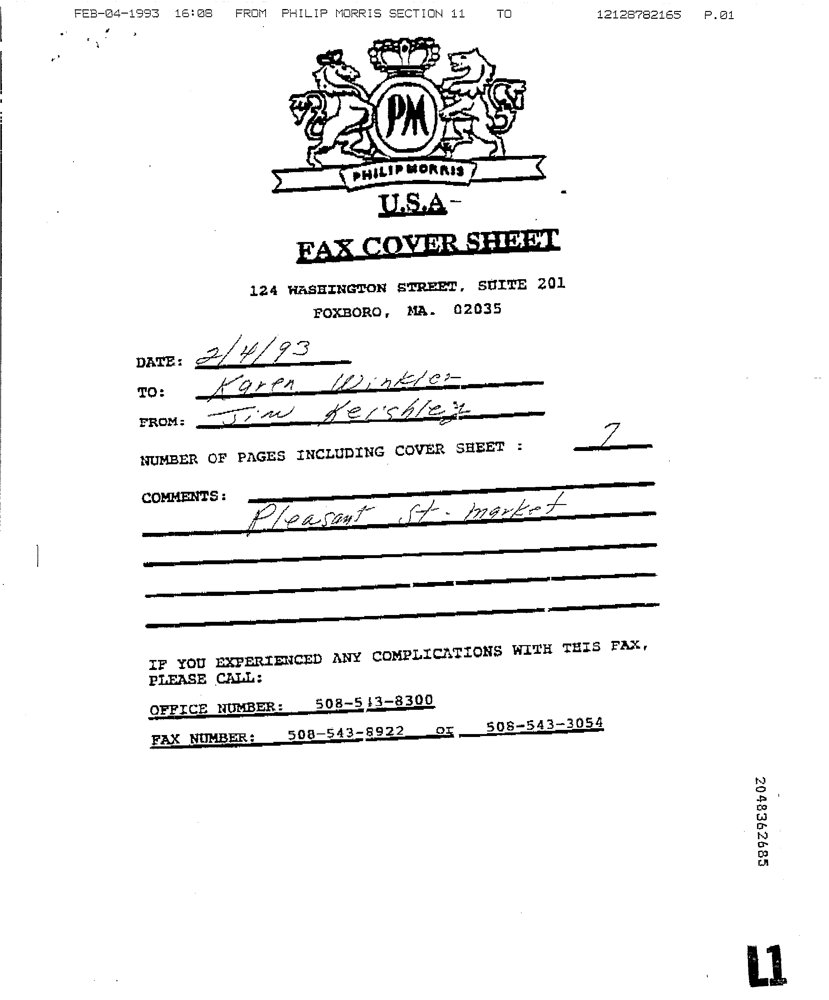 FEB-04-1993 16:08 FROM PHILIP MORRIS SECTION 11 TO 12128782165 P.01
PM
PHILIP MORRIS
U.S.A
FAX COVER SHEET
124 WASHINGTON STREET, SUITE 201
FOXBORO, MA. 02035
DATE: 2/4/93
TO: Karen Winkler
FROM: Jim Keighley
NUMBER OF PAGES INCLUDING COVER SHEET : 7
COMMENTS:
Pleasant St. market
IF YOU EXPERIENCED ANY COMPLICATIONS WITH THIS FAX,
PLEASE CALL:
OFFICE NUMBER: 508-543-8300
FAX NUMBER: 508-543-8922 or 508-543-3054
2048362685
L1